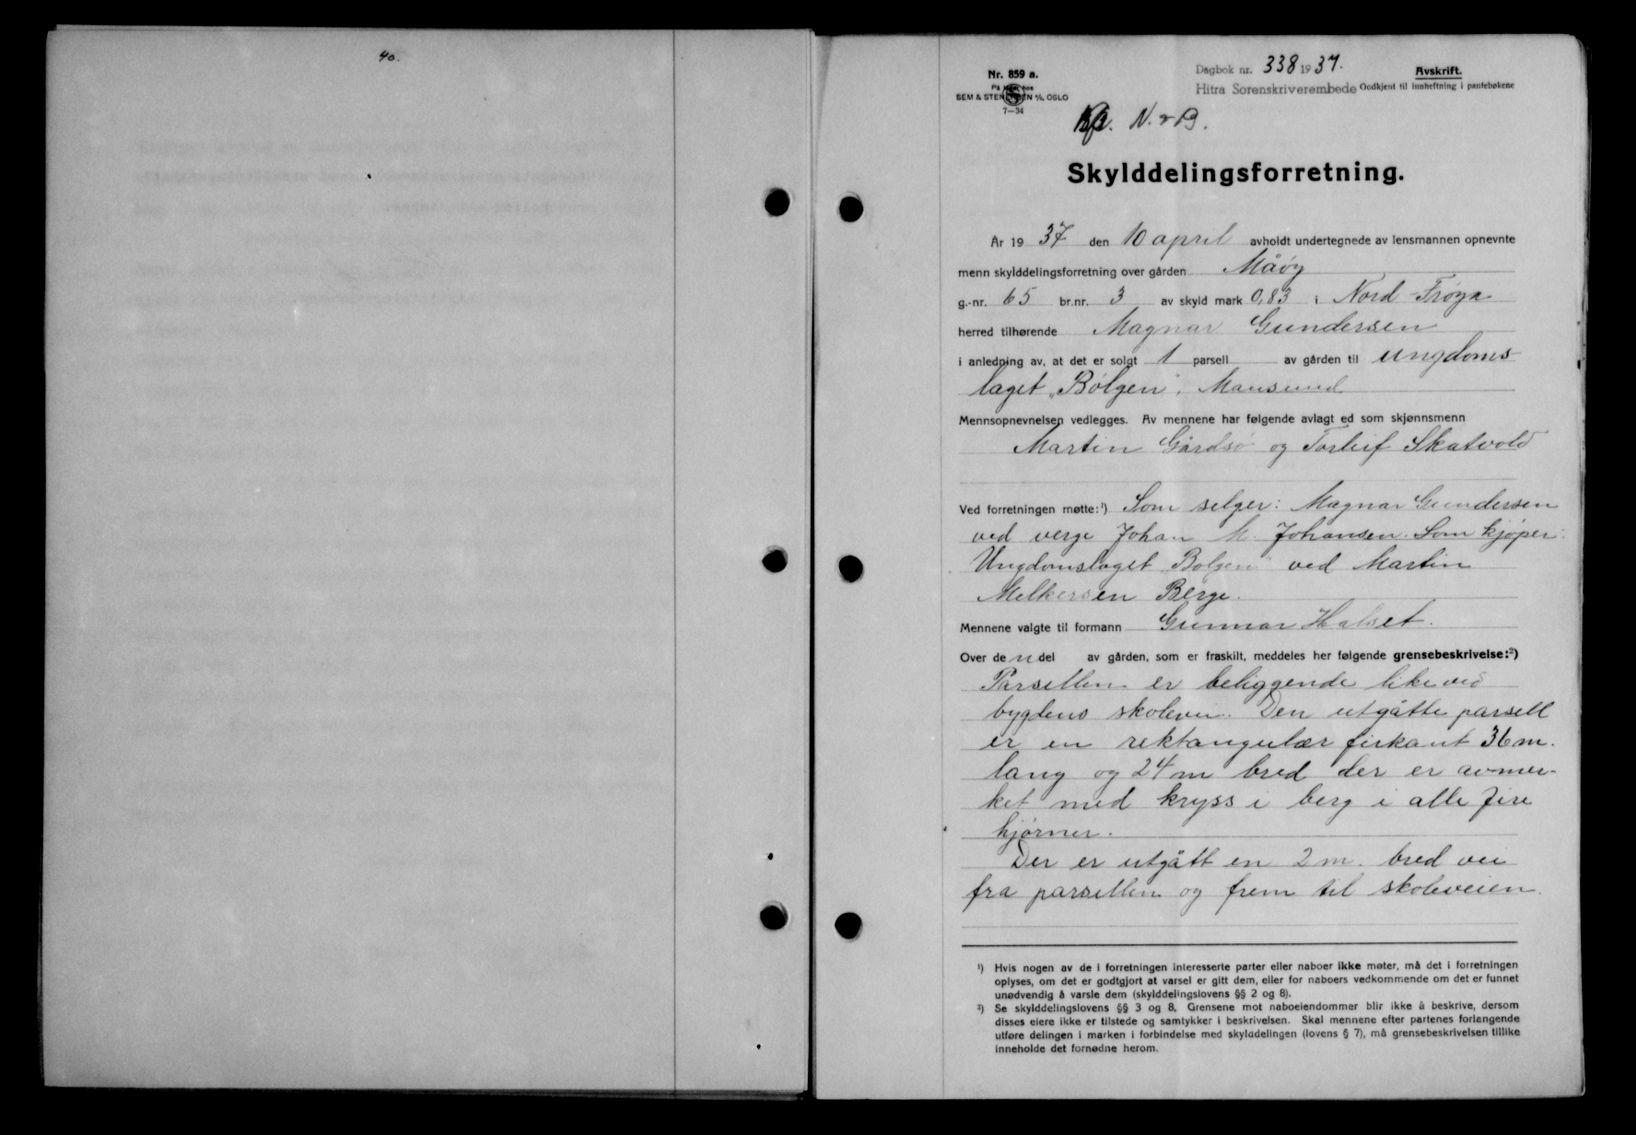 40.
Nr. 859 a.
SEM & STENERSEN A/S, OSLO
7—34
Dagbok nr. 338 1937.
Hitra Sorenskriverembede
Avskrift.
Godkjent til innheftning i pantebøkene
N. & B.
Skylddelingsforretning.
År 1937 den 10 april avholdt undertegnede av lensmannen opnevnte
menn skylddelingsforretning over gården Måøy
g.-nr. 65 br.nr. 3 av skyld mark 0,83 i Nord-Frøya
herred tilhørende Magnar Gundersen
i anledning av, at det er solgt 1 parsell av gården til ungdoms-
laget „Bølgen", Mausund
Mennsopnevnelsen vedlegges. Av mennene har følgende avlagt ed som skjønnsmenn
Martin Gårdsø og Torleif Skatvold
Ved forretningen møtte:¹) Som selger: Magnar Gundersen
ved verge Johan M. Johansen. Som kjøper:
Ungdomslaget „Bølgen" ved Martin
Melkersen Berge.
Mennene valgte til formann Gunnar Halset.
Over den del av gården, som er fraskilt, meddeles her følgende grensebeskrivelse:²)
Parsellen er beliggende like ved
bygdens skolevei. Den utgåtte parsell
er en rektangulær firkant 36 m.
lang og 24 m bred der er avmer-
ket med kryss i berg i alle fire
hjørner.
Der er utgått en 2 m. bred vei
fra parsellen og frem til skoleveien.
¹) Hvis nogen av de i forretningen interesserte parter eller naboer ikke møter, må det i forretningen
oplyses, om det er godtgjort at varsel er gitt dem, eller for naboers vedkommende om det er funnet
unødvendig å varsle dem (skylddelingslovens §§ 2 og 8).
²) Se skylddelingslovens §§ 3 og 8. Grensene mot naboeiendommer blir ikke å beskrive, dersom
disses eiere ikke er tilstede og samtykker i beskrivelsen. Skal mennene efter partenes forlangende
utføre delingen i marken i forbindelse med skylddelingen (lovens § 7), må grensebeskrivelsen tillike
inneholde det fornødne herom.